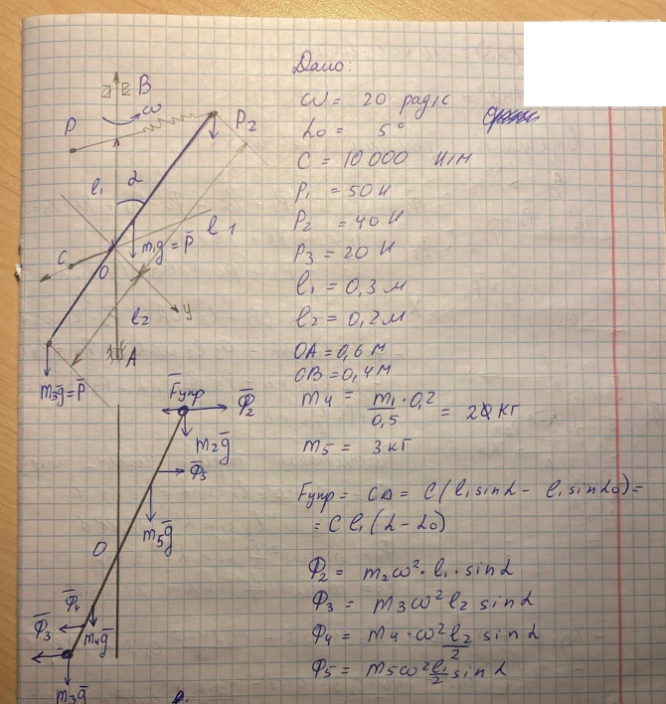 Дано:
ω = 20 рад/с
α₀ = 5°
C = 10 000 Н/м
P₁ = 50 Н
P₂ = 40 Н
P₃ = 20 Н
l₁ = 0,3 м
l₂ = 0,2 м
OA = 0,6 м
OB = 0,4 м
m₄ = m₁·0,2 / 0,5 = 2 кг
m₅ = 3 кг
Fупр = CΔ = C(l₁ sinα − l₁ sinα₀) =
= C l₁(α − α₀)
Φ₂ = m₂ω²·l₁·sinα
Φ₃ = m₃ω² l₂ sinα
Φ₄ = m₄·ω² l₂/2 sinα
Φ₅ = m₅ω² l₁/2 sinα
z B
ω
P
P₂
l₁
α
l 1
m₁g̅ = P̅
C
O
y
l₂
A
m₃g̅ = P̅
F̅упр
Φ̅₂
m₂g̅
Φ̅₅
m₅g̅
O
Φ̅₄
Φ̅₃
m₄g̅
m₃g̅